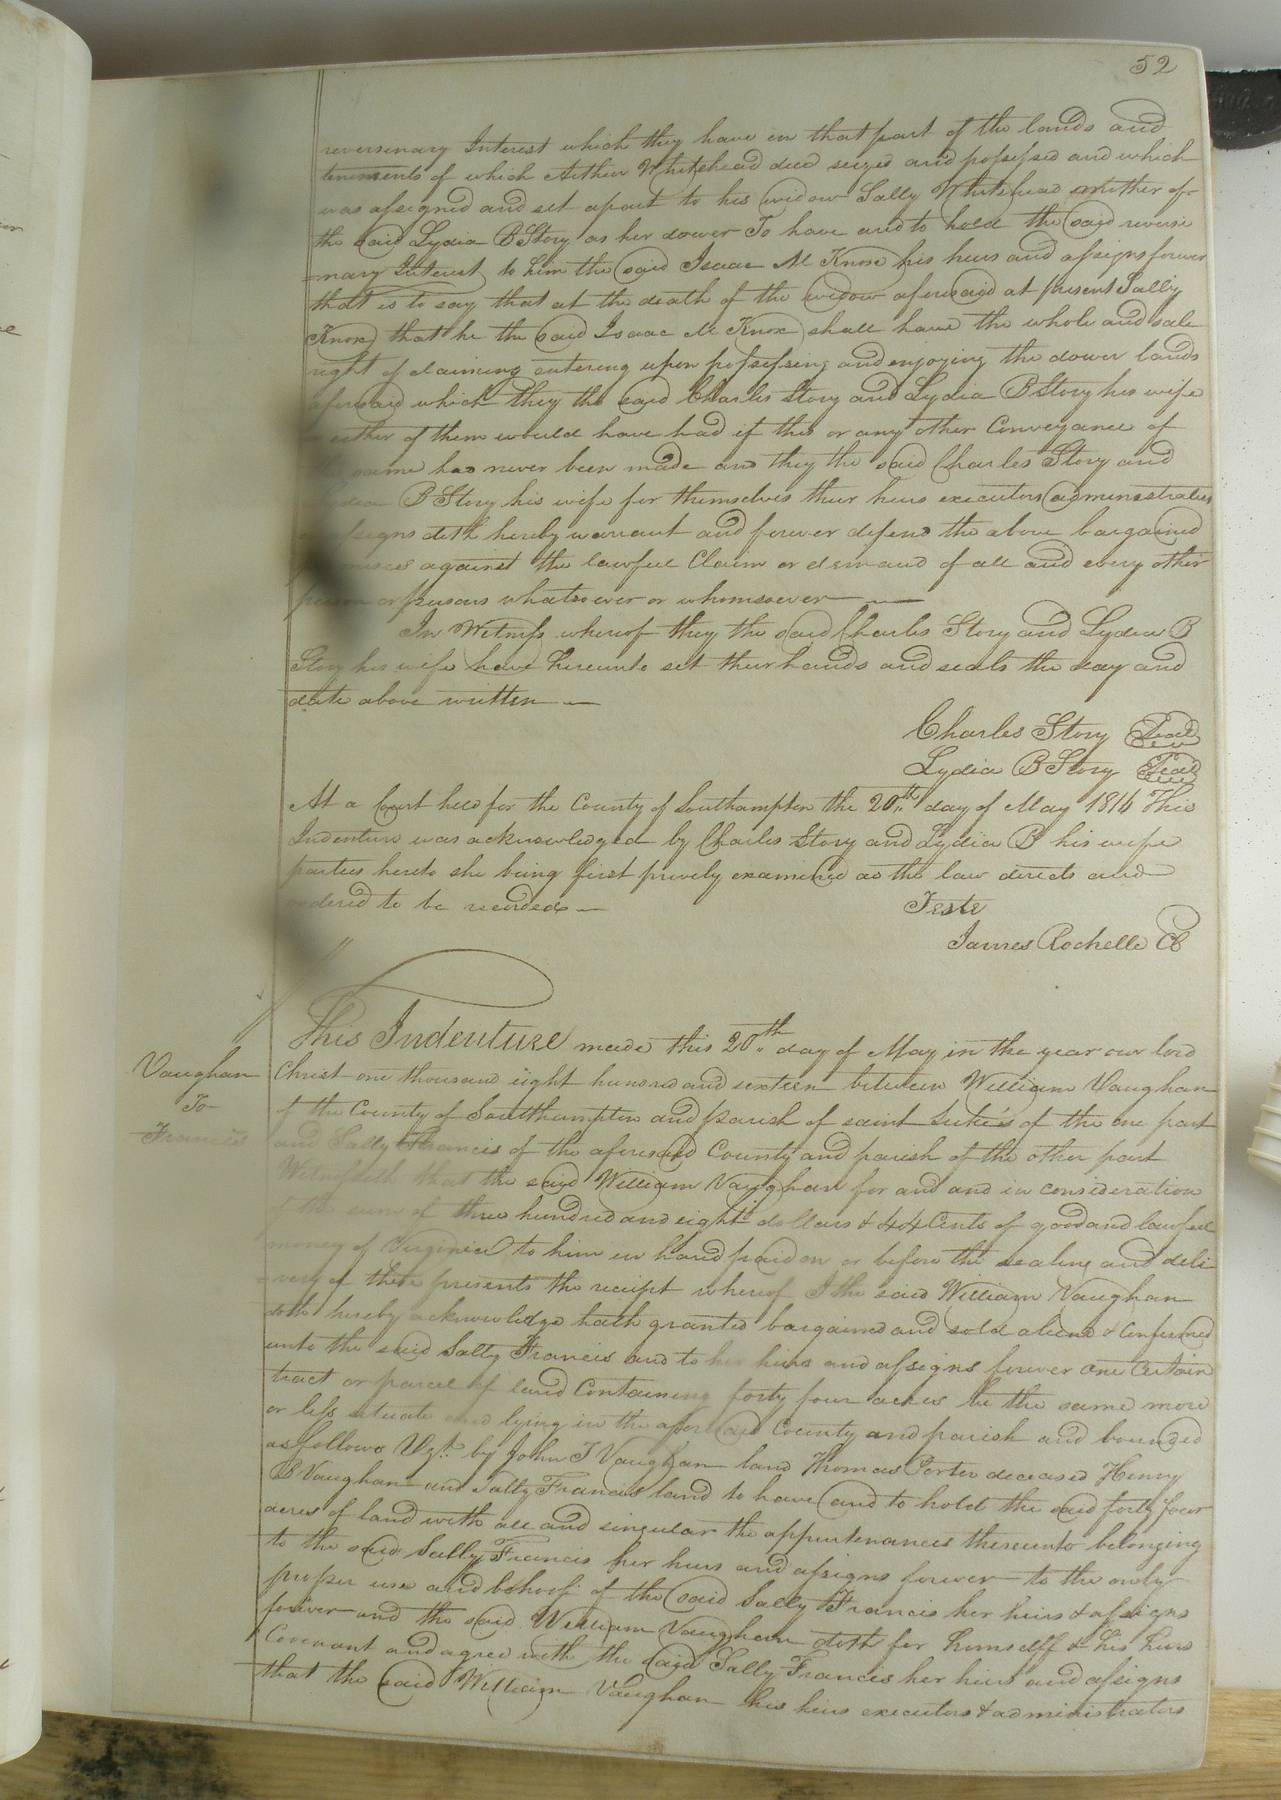 52
reversenary Interest which they have in that part of the lands and
tenements of which Arthur Whitehead decd seized and possessed and which
was assigned and set apart to his widow Sally Whitehead mother of
the said Lydia B Story as her dower To have and to hold the said reverse
=nary Interest to him the said Isaac M Knox his heirs and assigns forever
that is to say that at the death of the widow aforesaid at present Sally
Knox that he the said Isaac M Knox shall have the whole and sole
right of claiming entering upon possessing and enjoying the dower lands
aforesaid which they the said Charles Story and Lydia B Story his wife
either of them would have had if this or any other Conveyance of
the same had never been made and they the said Charles Story and
Lydia B Story his wife for themselves their heirs executors administrators
assigns doth hereby warrant and forever defend the above bargained
premises against the lawfull Claim or demand of all and every other
person or persons whatsoever or whomsoever
In Witness whereof they the said Charles Story and Lydia B
Story his wife have hereunto set their hands and seals the day and
date above written
Charles Story Seal
Lydia B Story Seal
At a Court held for the County of Southampton the 20th day of May 1816 This
Indenture was acknowledged by Charles Story and Lydia B his wife
parties hereto she being first privily examined as the law directs and
ordered to be recorded
Teste
James Rochelle CC
Vaughan
To
Francis
This Indenture made this 20th day of May in the year our lord
Christ one thousand eight hundred and sixteen between William Vaughan
of the County of Southhampton and parish of saint Luke's of the one part
and Sally Francis of the aforesaid County and parish of the other part
Witnesseth that the said William Vaughan for and and in consideration
of the sum of three hundred and eight dollars & 44 Cents of good and lawfull
money of Virginia to him in hand paid on or before the sealing and deli
=very of these presents the receipt whereof I the said William Vaughan
doth hereby acknowledge hath granted bargained and sold aliend & Confermed
unto the said Sally Francis and to her heirs and assigns forever one Certain
tract or parcel of land Containing forty four acres be the same more
or less situate and lying in the aforesaid County and parish and bounded
as follows Vizt. by John T Vaughan land Thomas Porter deceased Henry
B Vaughan and Sally Francis land to have and to hold the said forty four
acres of land with all and singular the appurtenances thereunto belonging
to the said Sally Francis her heirs and assigns forever to the only
proper use and behoof of the said Sally Francis her heirs & assigns
forever and the said William Vaughan doth for himself & his heirs
Covenant and agree with the said Sally Francis her heirs and assigns
that the said William Vaughan his heirs executors & administrators